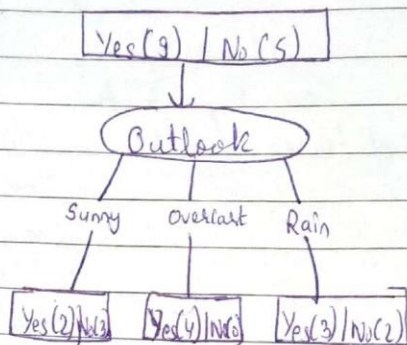 Yes(9) | No(5)
Outlook
Sunny Overcast Rain
Yes(2)|No(3) Yes(4)|No(0) Yes(3)|No(2)